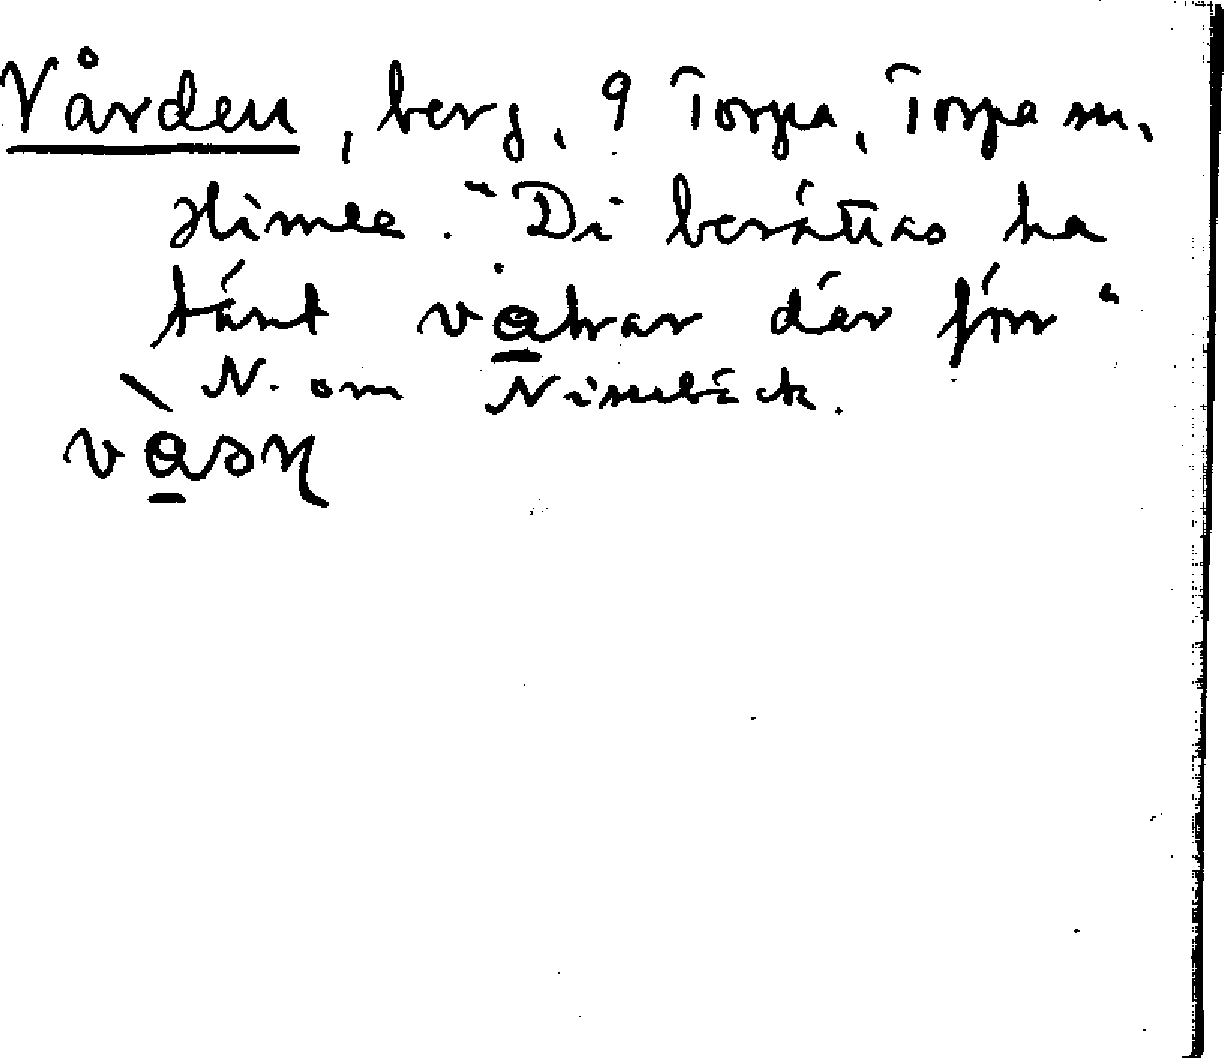 Vården, berg, 9 Torpa, Torpa sn,
Himle. "Di berättas ha
tänt va̱kar där förr"
N. om Nisebäck.